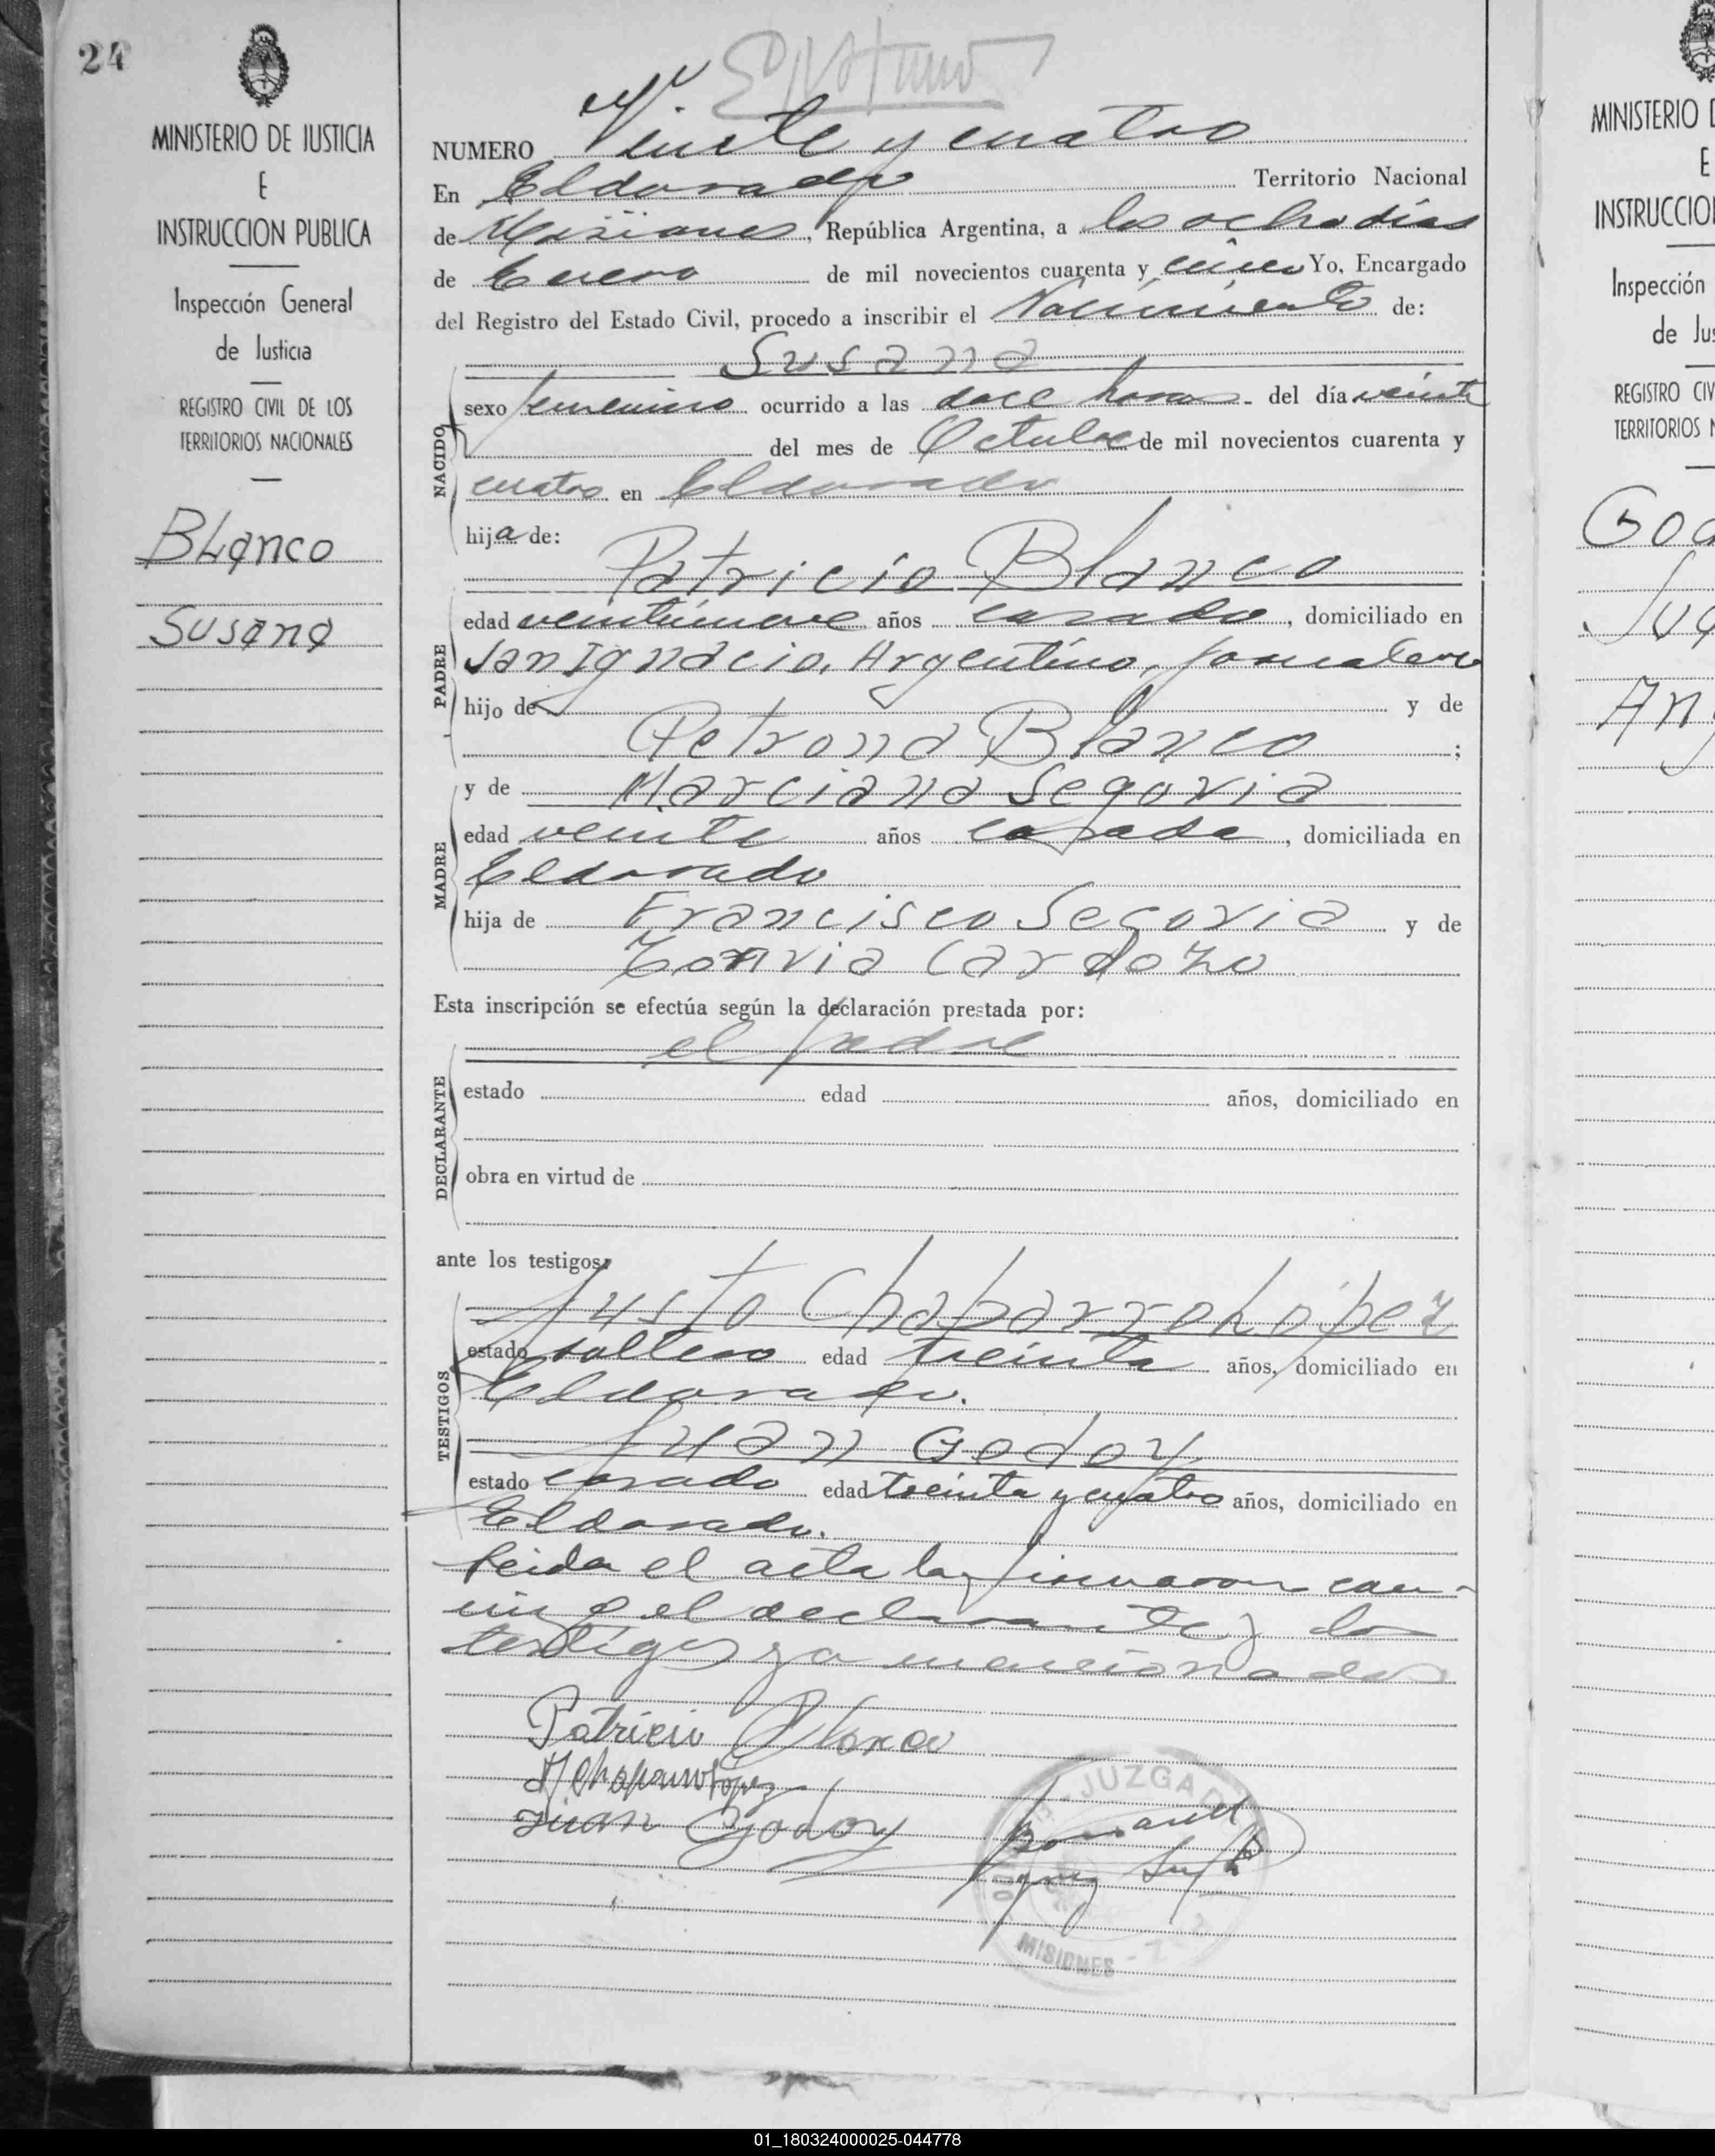 24
MINISTERIO DE JUSTICIA
E
INSTRUCCION PUBLICA
Inspección General
de Justicia
REGISTRO CIVIL DE LOS
TERRITORIOS NACIONALES
Blanco
Susana
NUMERO Veinte y cuatro
En Eldorado Territorio Nacional
de Misiones, República Argentina, a los ocho días
de Enero de mil novecientos cuarenta y cinco Yo, Encargado
del Registro del Estado Civil, procedo a inscribir el Nacimiento de:
Susana
NACIDO
sexo femenino ocurrido a las doce horas - del día veinte
del mes de Octubre de mil novecientos cuarenta y
cuatro en Eldorado
hija de:
Patricio Blanco
PADRE
edad veintinueve años casado, domiciliado en
San Ignacio, Argentino, jornalero
hijo de y de
Petrona Blanco ;
y de Marciana Segovia
MADRE
edad veinte años casada, domiciliada en
Eldorado
hija de Francisco Segovia y de
Cardozo
Esta inscripción se efectúa según la declaración prestada por:
el padre
DECLARANTE
estado edad años, domiciliado en
obra en virtud de
ante los testigos:
Justo Chabarro López
TESTIGOS
estado soltero edad treinta años, domiciliado en
Eldorado.
Juan Godoy
estado casado edad treinta y cuatro años, domiciliado en
Eldorado.
Leida el acta la firmaron con-
migo el declarante y los
testigos ya mencionados
Patricio Blanco
J Chaparro López
Juan Godoy
JUZGADO
MISIONES
MINISTERIO D
E
INSTRUCCIO
Inspección
de Jus
REGISTRO CIV
TERRITORIOS N
God
Ang
01_180324000025-044778